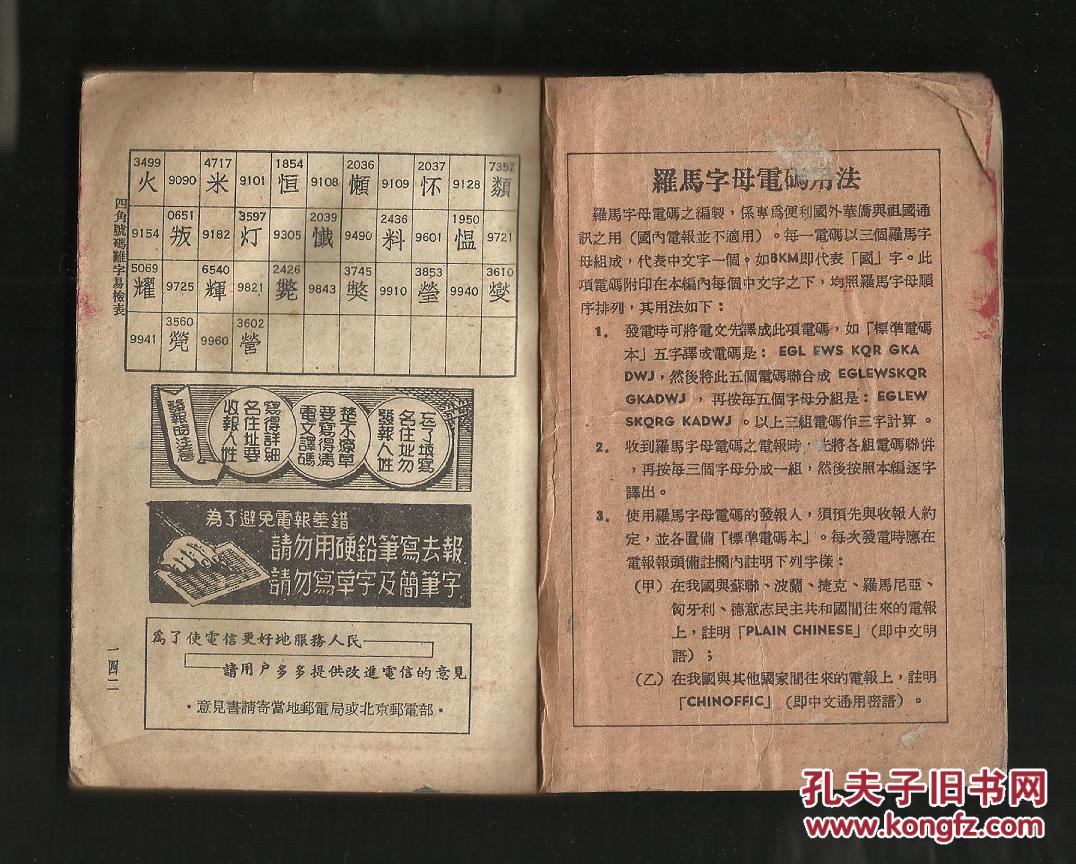 四角號碼難字易檢表
3499 4717 1854 2036 2037 7352
火 9090 米 9101 恒 9108 懶 9109 怀 9128 類
0651 3597 2039 2436 1950
9154 叛 9182 灯 9305 懺 9490 料 9601 愠 9721
5069 6540 2426 3745 3853 3610
耀 9725 輝 9821 斃 9843 獎 9910 瑩 9940 燮
3560 3602
9941 煢 9960 營
發報時注意
收報人姓
名住址要
寫得詳細
電文譯碼
要寫得清
楚不潦草
發報人姓
名住址勿
忘了填寫
為了避免電報差錯
請勿用硬鉛筆寫去報
請勿寫草字及簡筆字
為了使電信更好地服務人民
請用户多多提供改進電信的意見
·意見書請寄當地郵電局或北京郵電部·
一四二
羅馬字母電碼用法
羅馬字母電碼之編製，係專爲便利國外華僑與祖國通
訊之用（國內電報並不適用）。每一電碼以三個羅馬字
母組成，代表中文字一個。如BKM即代表「國」字。此
項電碼附印在本編內每個中文字之下，均照羅馬字母順
序排列，其用法如下：
1. 發電時可將電文先譯成此項電碼，如「標準電碼
本」五字譯成電碼是：EGL EWS KQR GKA
DWJ，然後將此五個電碼聯合成 EGLEWSKQR
GKADWJ ，再按每五個字母分組是：EGLEW
SKQRG KADWJ 。以上三組電碼作三字計算。
2. 收到羅馬字母電碼之電報時，先將各組電碼聯併
，再按每三個字母分成一組，然後按照本編逐字
譯出。
3. 使用羅馬字母電碼的發報人，須預先與收報人約
定，並各置備「標準電碼本」。每次發電時應在
電報報頭備註欄內註明下列字樣：
（甲）在我國與蘇聯、波蘭、捷克、羅馬尼亞、
匈牙利、德意志民主共和國間往來的電報
上，註明「PLAIN CHINESE」（即中文明
語）；
（乙）在我國與其他國家間往來的電報上，註明
「CHINOFFIC」（即中文通用密語）。
孔夫子旧书网
www.kongfz.com